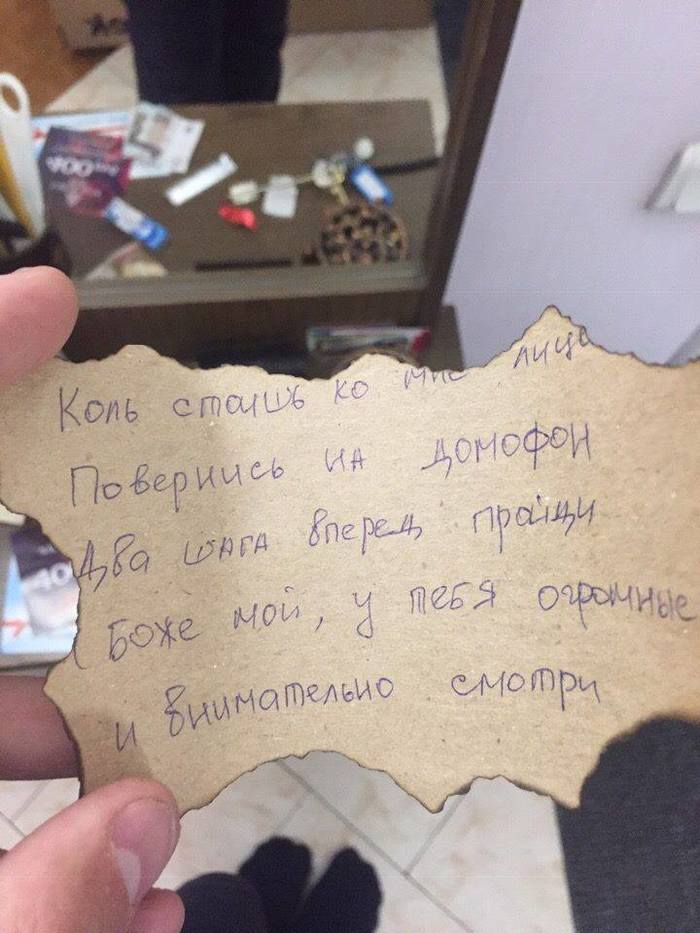 Коль стоишь ко мне лицо
Повернись на домофон
Два шага вперед пройди
Боже мой, у тебя огромные
и внимательно смотри
400